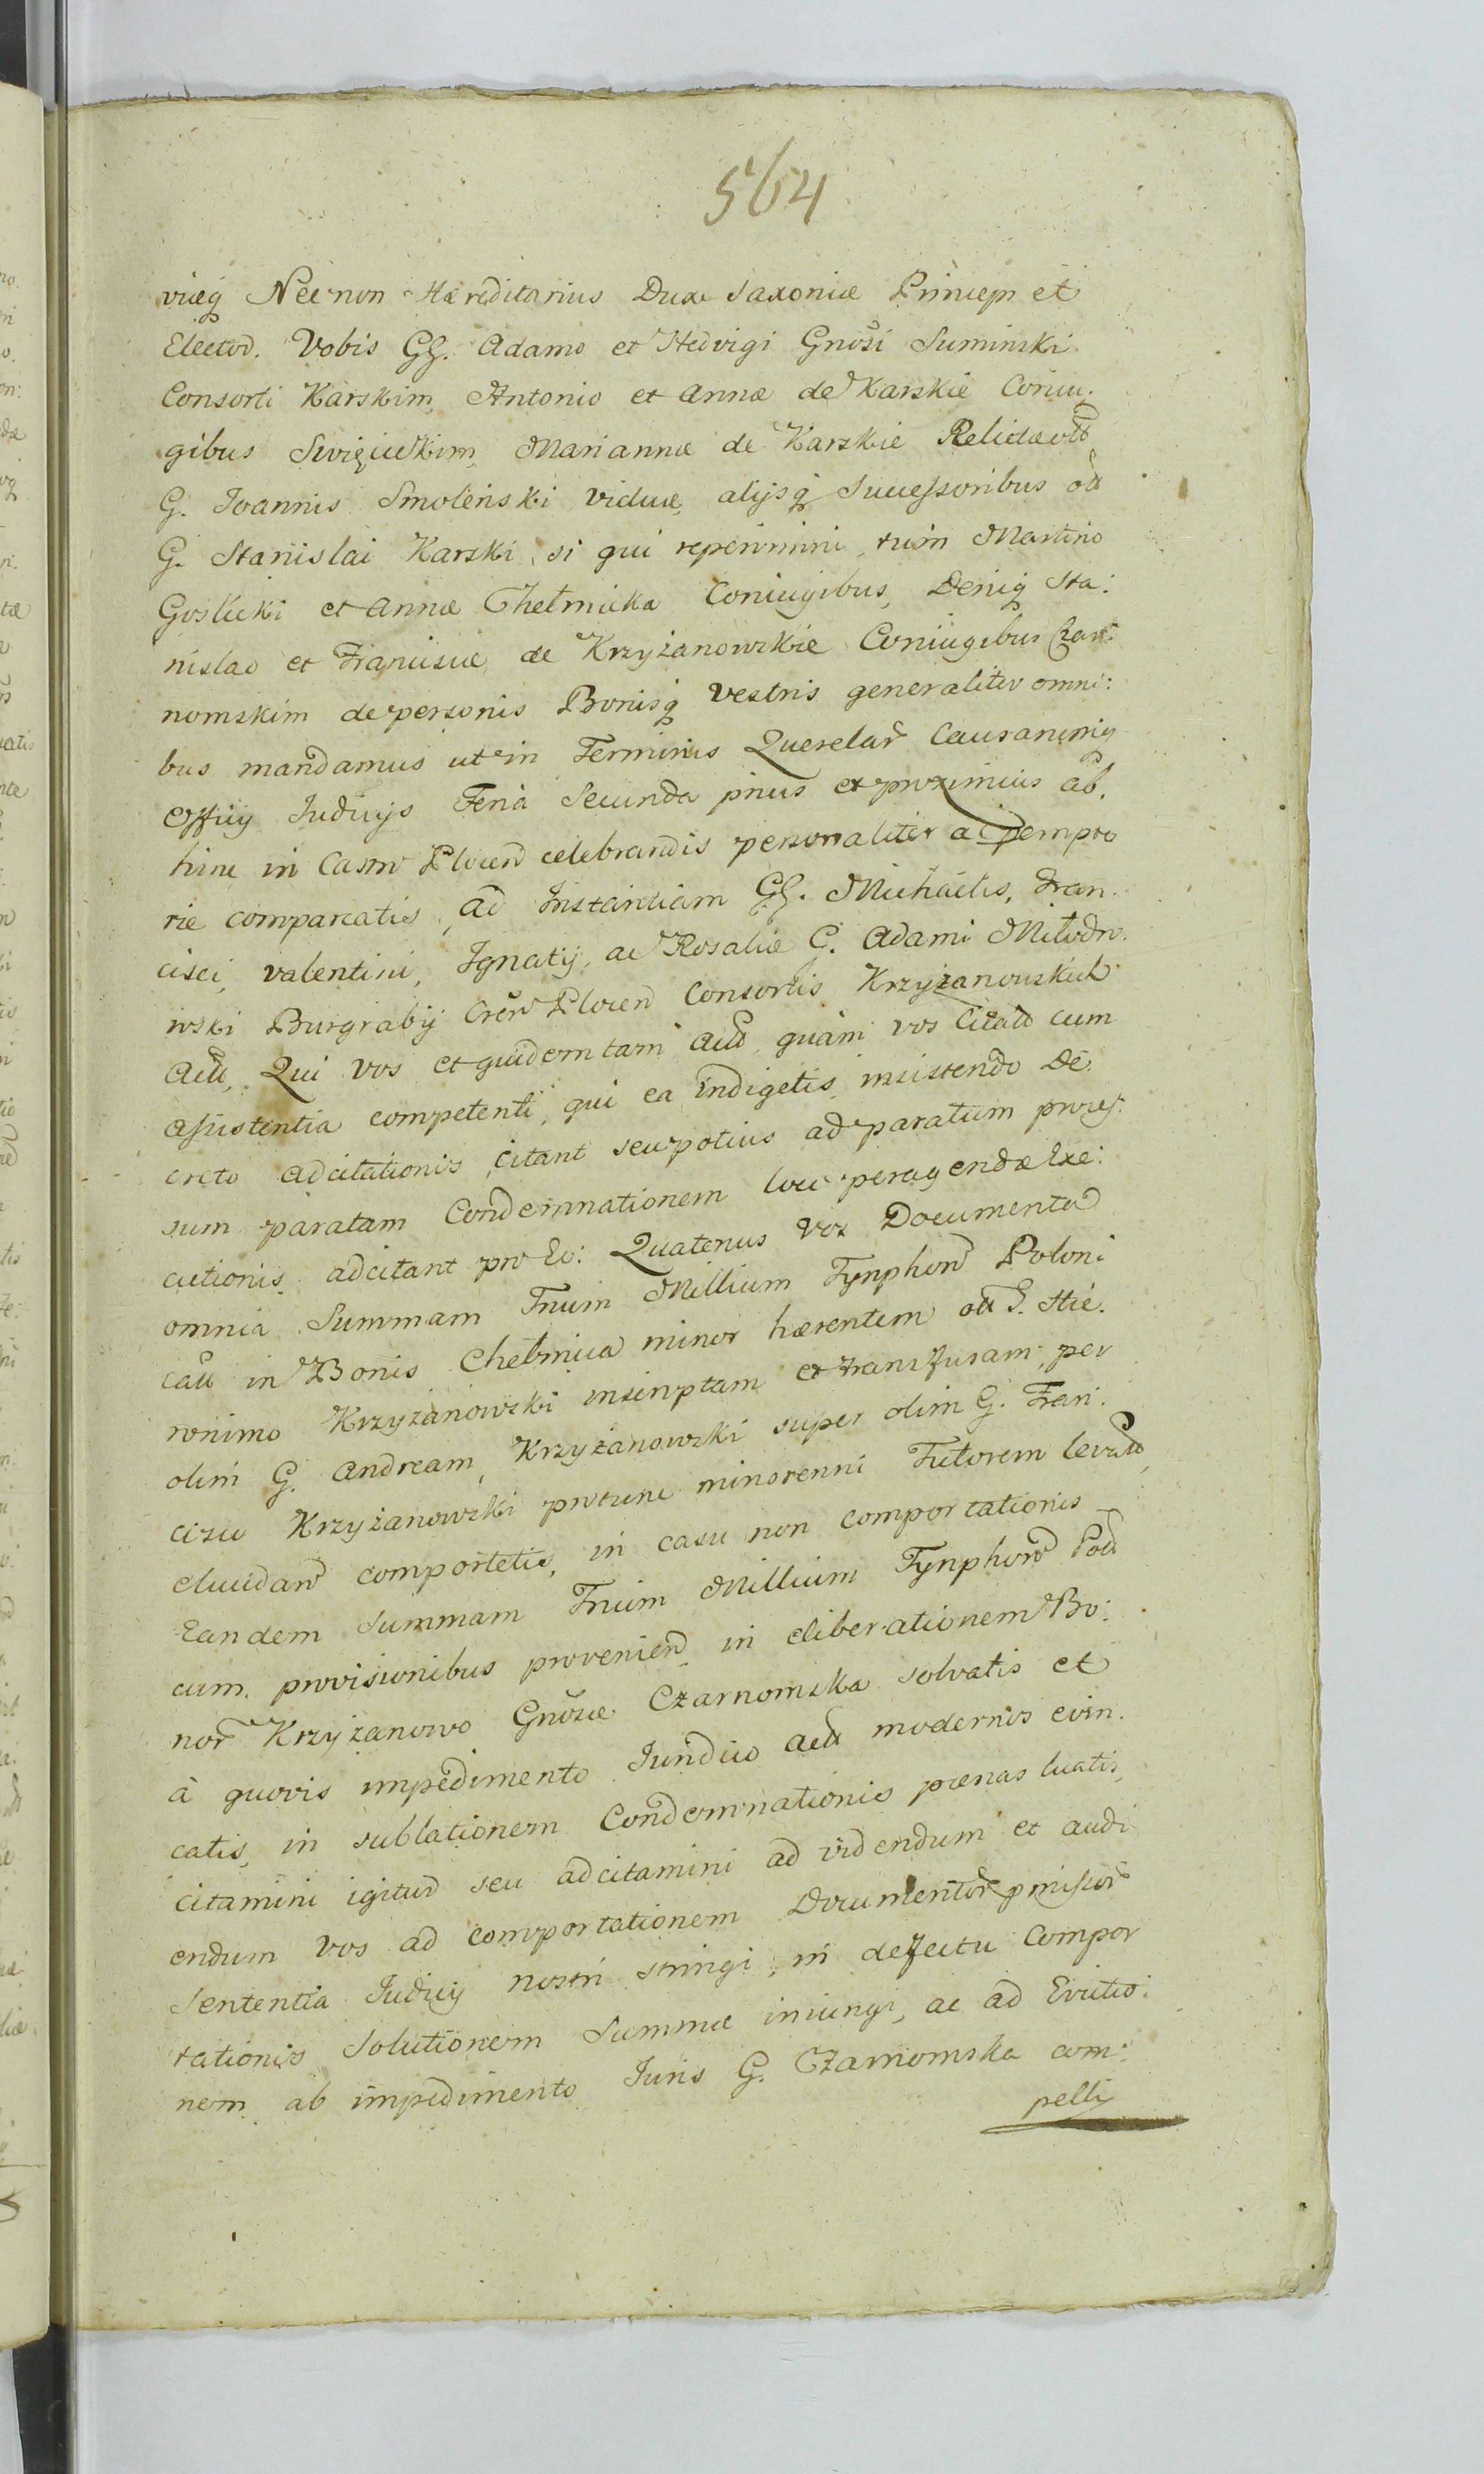 564
viæq̃ Necnon Hæreditarius Dux Saxoniæ Princeps et
Elector. Vobis GG. Adamo et Hedvigi Gnosi Suminski
Consorti Karskim, Antonio et Annæ de Karskie Coniu:
gibus Swięcickim, Mariannæ de Karskie Relictæ olt
G. Joannis Smolenski viduæ, alijsq̃ Successoribus olt
G. Stanislai Karski, si qui reperimini, tum Martino
Goslicki et Annæ Chełmicka Coniugibus, Deniq̃ Sta:
nislao et Franciscæ de Krzyżanowskie Coniugibus Czar:
nomskim de personis Bonisq̃ Vestris generaliter omni:
bus mandamus ut in Terminis Querelar Causarumq̃
Officij Judicijs Feria Secunda prius et proximius ab,
hinc in Castro Plocen celebrandis personaliter ac pempto
rie compareatis, ad Instantiam GG. Michaelis, Fran:
cisci, Valentini, Ignatij, ac Rosaliæ G. Adami Miłodro:
wski Burgrabij Plocen Consortis Krzyżanowskich
Act̃, Qui vos et quidem tam Act̃ quàm vos Citat̃ cum
assistentia competenti, qui ea indigetis, insistendo De:
creto adcitationis citant seu potius ad paratum proces:
sum paratam Condemnationem loco peragendæ Exe:
cutionis adcitant pro Eo: Quatenus vos Documenta
omnia Summam Trium Millium Tynphon Poloni
cal̃ in Bonis Chełmica minor hærentem olt G. Hie:
ronimo Krzyżanowski inscriptam et transfusam, per
olim G. Andream Krzyżanowski super olim G. Fran:
cisco Krzyżanowski protunc minorenni Tutorem levat̃,
elucidan comportetis, in casu non comportationis
Eandem Summam Trium Millium Tynphon Pol̃
cum provisionibus provenien in eliberationem Bo:
nor Krzyżanowo Gnosæ Czarnomska solvatis et
à quovis impedimento Juridico Act̃ modernos evin:
catis, in sublationem Condemnationis pœnas luatis,
citamini igitur seu adcitamini ad videndum et audi
endum vos ad comportationem Documentor pmissor
Sententia Judicij nostri stringi, in defectu Compor
tationis Solutionem Summæ iniungi, ac ad Evictio:
nem ab impedimento Juris G. Czarnomska com:
pelli